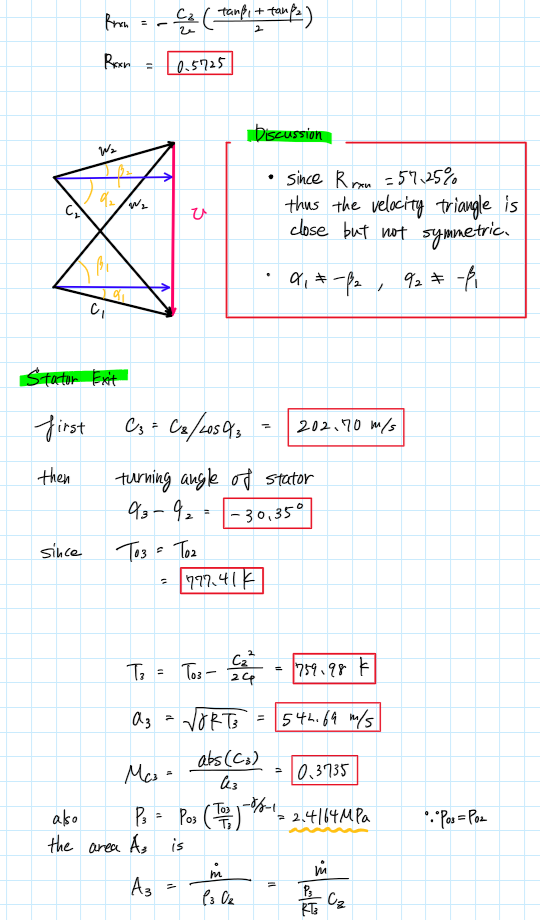 Rrxn = - Cz/U ( (tanβ1 + tanβ2)/2 )
Rrxn = 0.5725
Discussion
• since Rrxn = 57.25%
thus the velocity triangle is
close but not symmetric.
• α1 ≠ -β2 , α2 ≠ -β1
W2
β2
α2
C2
W2
U
β1
α1
C1
Stator Exit
first C3 = Cz/cosα3 = 202.70 m/s
then turning angle of stator
α3 - α2 = -30.35°
since T03 = T02
= 777.41 K
T3 = T03 - C3²/2Cp = 759.98 K
a3 = √γRT3 = 542.69 m/s
MC3 = abs(C3)/a3 = 0.3735
also P3 = P03 (T03/T3)^-γ/γ-1 = 2.4164 MPa ∵ P03 = P02
the area A3 is
A3 = ṁ/(ρ3 Cz) = ṁ/((P3/RT3) Cz)